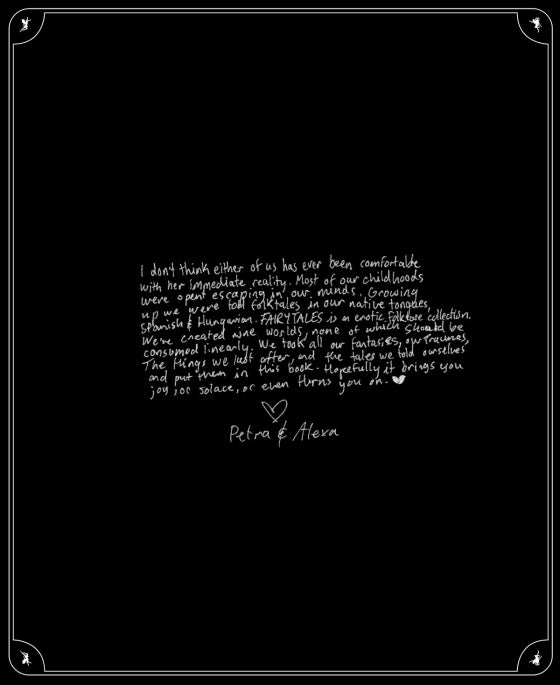 I don't think either of us has ever been comfortable
with her immediate reality. Most of our childhoods
were spent escaping in our minds. Growing
up we were told folktales in our native tongues,
Spanish & Hungarian. FAIRYTALES is an erotic folklore collection.
We've created nine worlds, none of which should be
consumed linearly. We took all our fantasies, our traumas,
The things we lust after, and the tales we told ourselves
and put them in this book. Hopefully it brings you
joy, or solace, or even turns you on.
Petra & Alexa